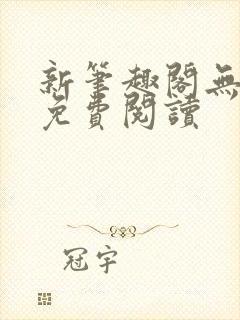 新筆趣閣無
免費閱讀
冠宇